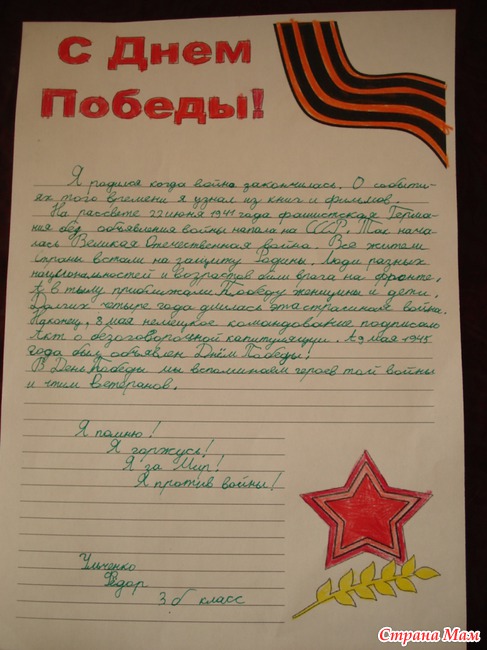 С Днем
Победы!
Я родился когда война закончилась. О событи-
ях того времени я узнал из книг и фильмов.
На рассвете 22 июня 1941 года фашистская Герма-
ния без объявления войны напала на СССР. Так нача-
лась Великая Отечественная война. Все жители
страны встали на защиту Родины. Люди разных
национальностей и возрастов били врага на фронте,
а в тылу приближали Победу женщины и дети.
Долгих четыре года длилась эта страшная война.
Наконец, 8 мая немецкое командование подписало
Акт о безоговорочной капитуляции. А 9 мая 1945
года был объявлен Днём Победы!
В День Победы мы вспоминаем героев той войны
и чтим Ветеранов.
Я помню!
Я горжусь!
Я за Мир!
Я против войны!
Ильченко
Фёдор
3 б класс
Страна Мам